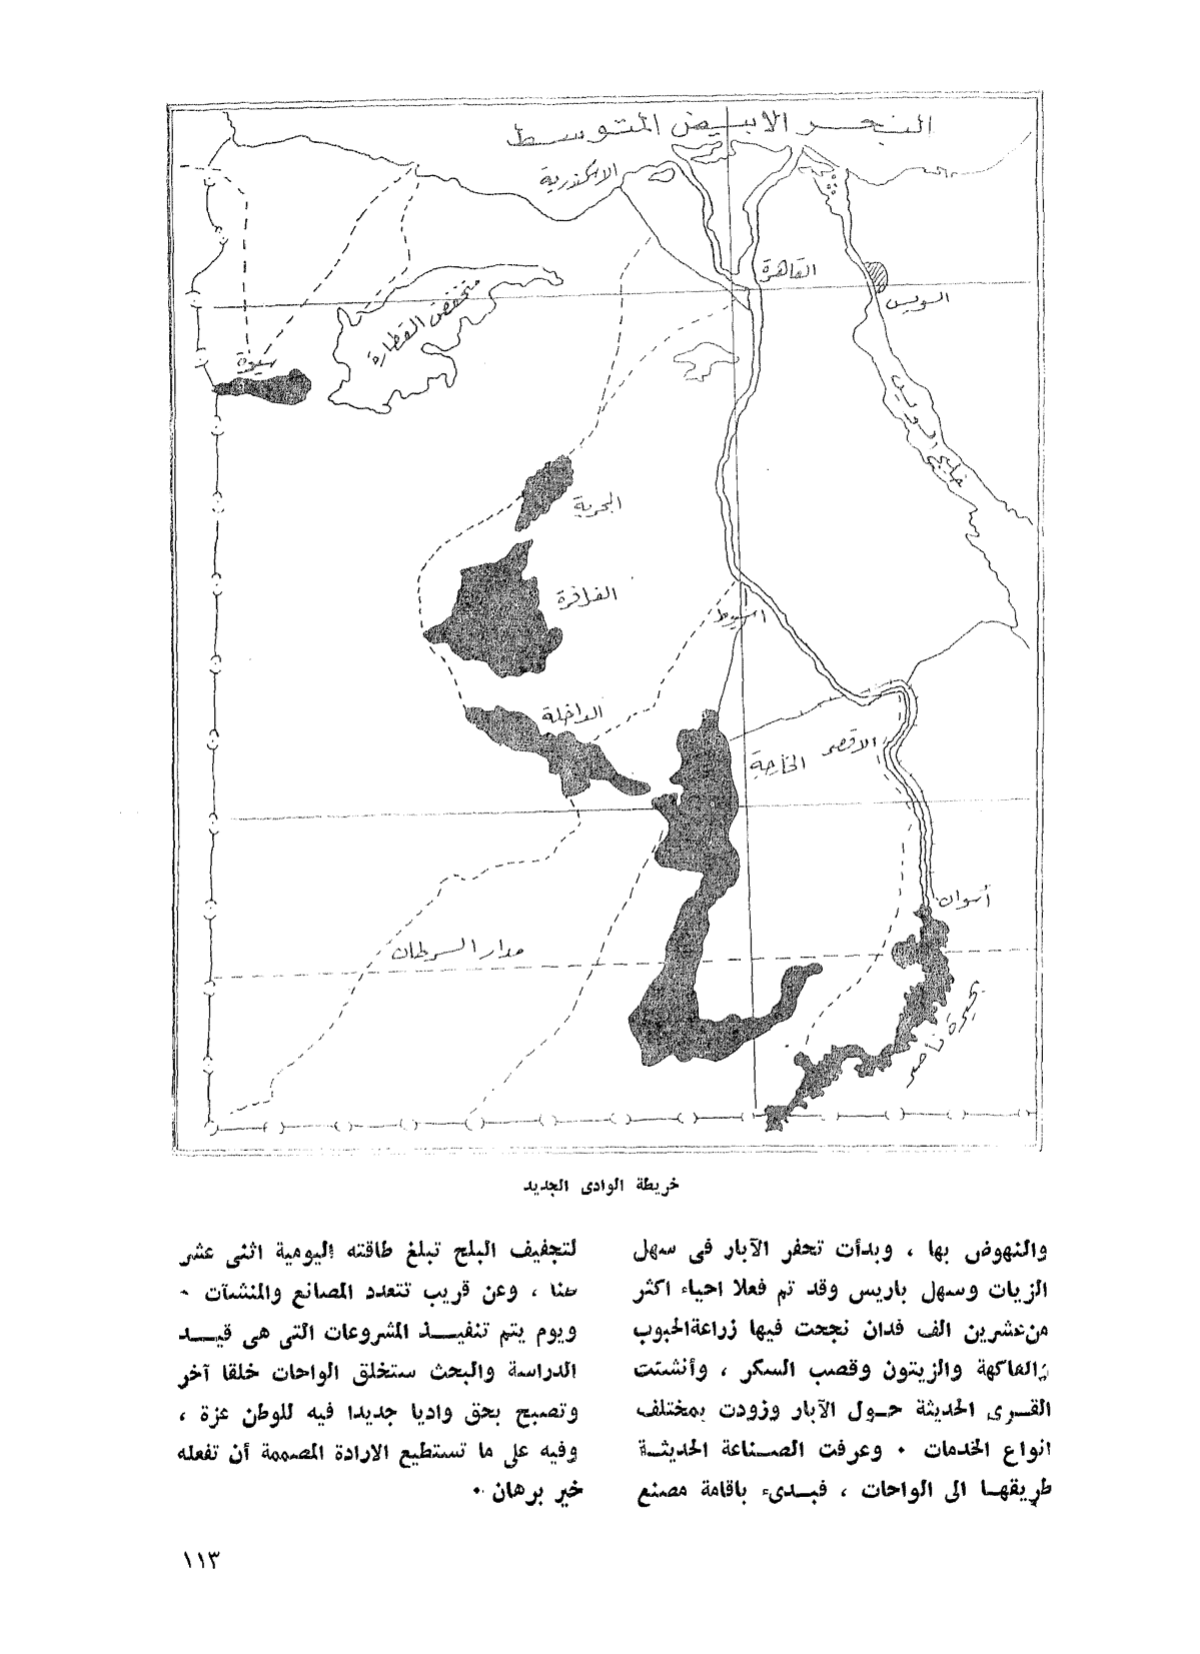 البحر الابيض المتوسط
الاسكندرية
القاهرة
السويس
منخفض القطارة
سيوة
خليج السويس
البحرية
الفرافرة
اسيوط
الداخلة
الاقصر
الخارجة
أسوان
مدار السرطان
بحيرة ناصر
خريطة الوادى الجديد
والنهوض بها ، وبدأت تحفر الآبار فى سهل
الزيات وسهل باريس وقد تم فعلا احياء اكثر
من عشرين الف فدان نجحت فيها زراعة الحبوب
والفاكهة والزيتون وقصب السكر ، وأنشئت
القرى الحديثة حول الآبار وزودت بمختلف
انواع الخدمات ٠ وعرفت الصناعة الحديثة
طريقها الى الواحات ، فبدىء باقامة مصنع
لتجفيف البلح تبلغ طاقته اليومية اثنى عشر
طنا ، وعن قريب تتعدد المصانع والمنشآت ٠
ويوم يتم تنفيذ المشروعات التى هى قيد
الدراسة والبحث ستخلق الواحات خلقا آخر
وتصبح بحق واديا جديدا فيه للوطن عزة ،
وفيه على ما تستطيع الارادة المصممة أن تفعله
خير برهان ٠
١١٣